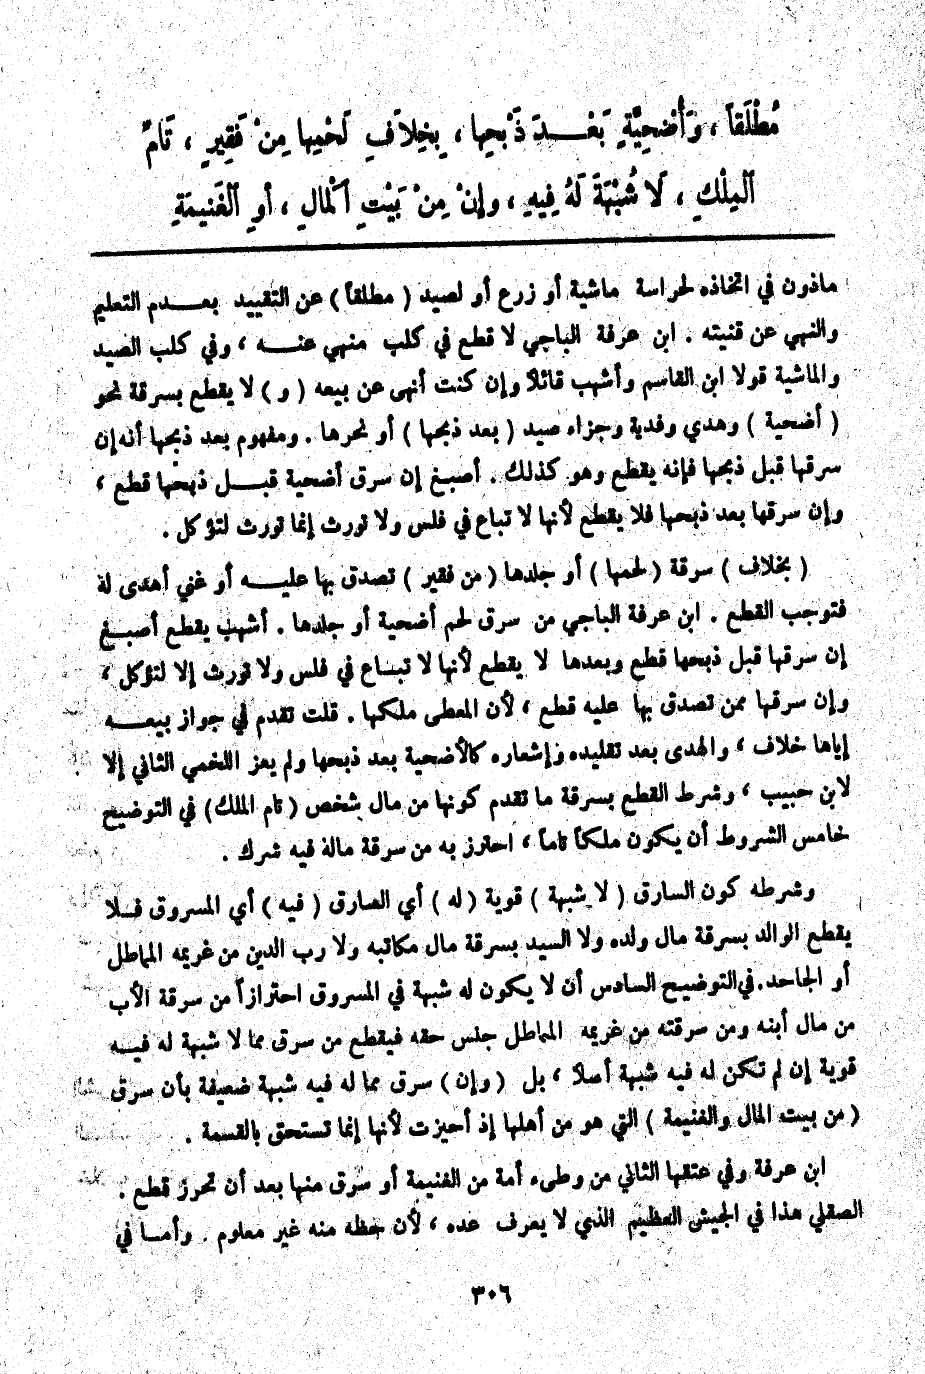 مُطْلَقاً ، وَأُضْحِيَّةٍ بَعْــدَ ذَبْحِها ، بِخِلَافِ لَحْمِها مِنْ فَقِيرٍ ، تَامِّ
ٱلْمِلْكِ ، لَا شُبْهَةَ لَهُ فِيهِ ، وإِنْ مِنْ بَيْتِ ٱلْمالِ ، أو ٱلْغَنيمَةِ
ماذون في اتخاذه لحراسة ماشية أو زرع أو لصيد ( مطلقاً ) عن التقييد بعــدم التعليم
والنهي عن قنيته . ابن عرفة الباجي لا قطع في كلب منهي عنــه ، وفي كلب الصيد
والماشية قولا ابن القاسم وأشهب قائلاً وإن كنت أنهى عن بيعه ( و ) لا يقطع بسرقة نحو
( أضحية ) وهدي وفدية وجزاء صيد ( بعد ذبحها ) أو نحرها . ومفهوم بعد ذبحها أنه إن
سرقها قبل ذبحها فإنه يقطع وهو كذلك . أصبغ إن سرق أضحية قبــل ذبحها قطع ،
وإن سرقها بعد ذبحها فلا يقطع لأنها لا تباع في فلس ولا تورث إنما تورث لتؤكل .
( بخلاف ) سرقة ( لحمها ) أو جلدها ( من فقير ) تصدق بها عليــه أو غني أهدى له
فتوجب القطع . ابن عرفة الباجي من سرق لحم أضحية أو جلدها . أشهب يقطع أصبــغ
إن سرقها قبل ذبحها قطع وبعدها لا يقطع لأنها لا تبــاع في فلس ولا تورث إلا لتؤكل ،
وإن سرقها ممن تصدق بها عليه قطع ، لأن المعطى ملكها . قلت تقدم في جواز بيعــه
إياها خلاف ، والهدى بعد تقليده وإشعاره كالأضحية بعد ذبحها ولم يعز اللخمي الثاني إلا
لابن حبيب ، وشرط القطع بسرقة ما تقدم كونها من مال شخص ( تام الملك ) في التوضيح
خامس الشروط أن يكون ملكاً تاماً ، احترز به من سرقة ماله فيه شرك .
وشرطه كون السارق ( لا شبهة ) قوية ( له ) أي السارق ( فيه ) أي المسروق فــلا
يقطع الوالد بسرقة مال ولده ولا السيد بسرقة مال مكاتبه ولا رب الدين من غريمه المماطل
أو الجاحد. في التوضيح السادس أن لا يكون له شبهة في المسروق احترازاً من سرقة الأب
من مال أبنه ومن سرقته من غريمه المماطل جنس حقه فيقطع من سرق مما لا شبهة له فيــه
قوية إن لم تكن له فيه شبهة أصلاً ، بل ( وإن ) سرق مما له فيه شبهة ضعيفة بأن سرق
( من بيت المال والغنيمة ) التي هو من أهلها إذ أحيزت لأنها إنما تستحق بالقسمة .
ابن عرفة وفي عتقها الثاني من وطىء أمة من الغنيمة أو سرق منها بعد أن تحرز قطع .
الصقلي هذا في الجيش العظيم الذي لا يعرف عده ، لأن حظه منه غير معلوم . وأمــا في
٣٠٦